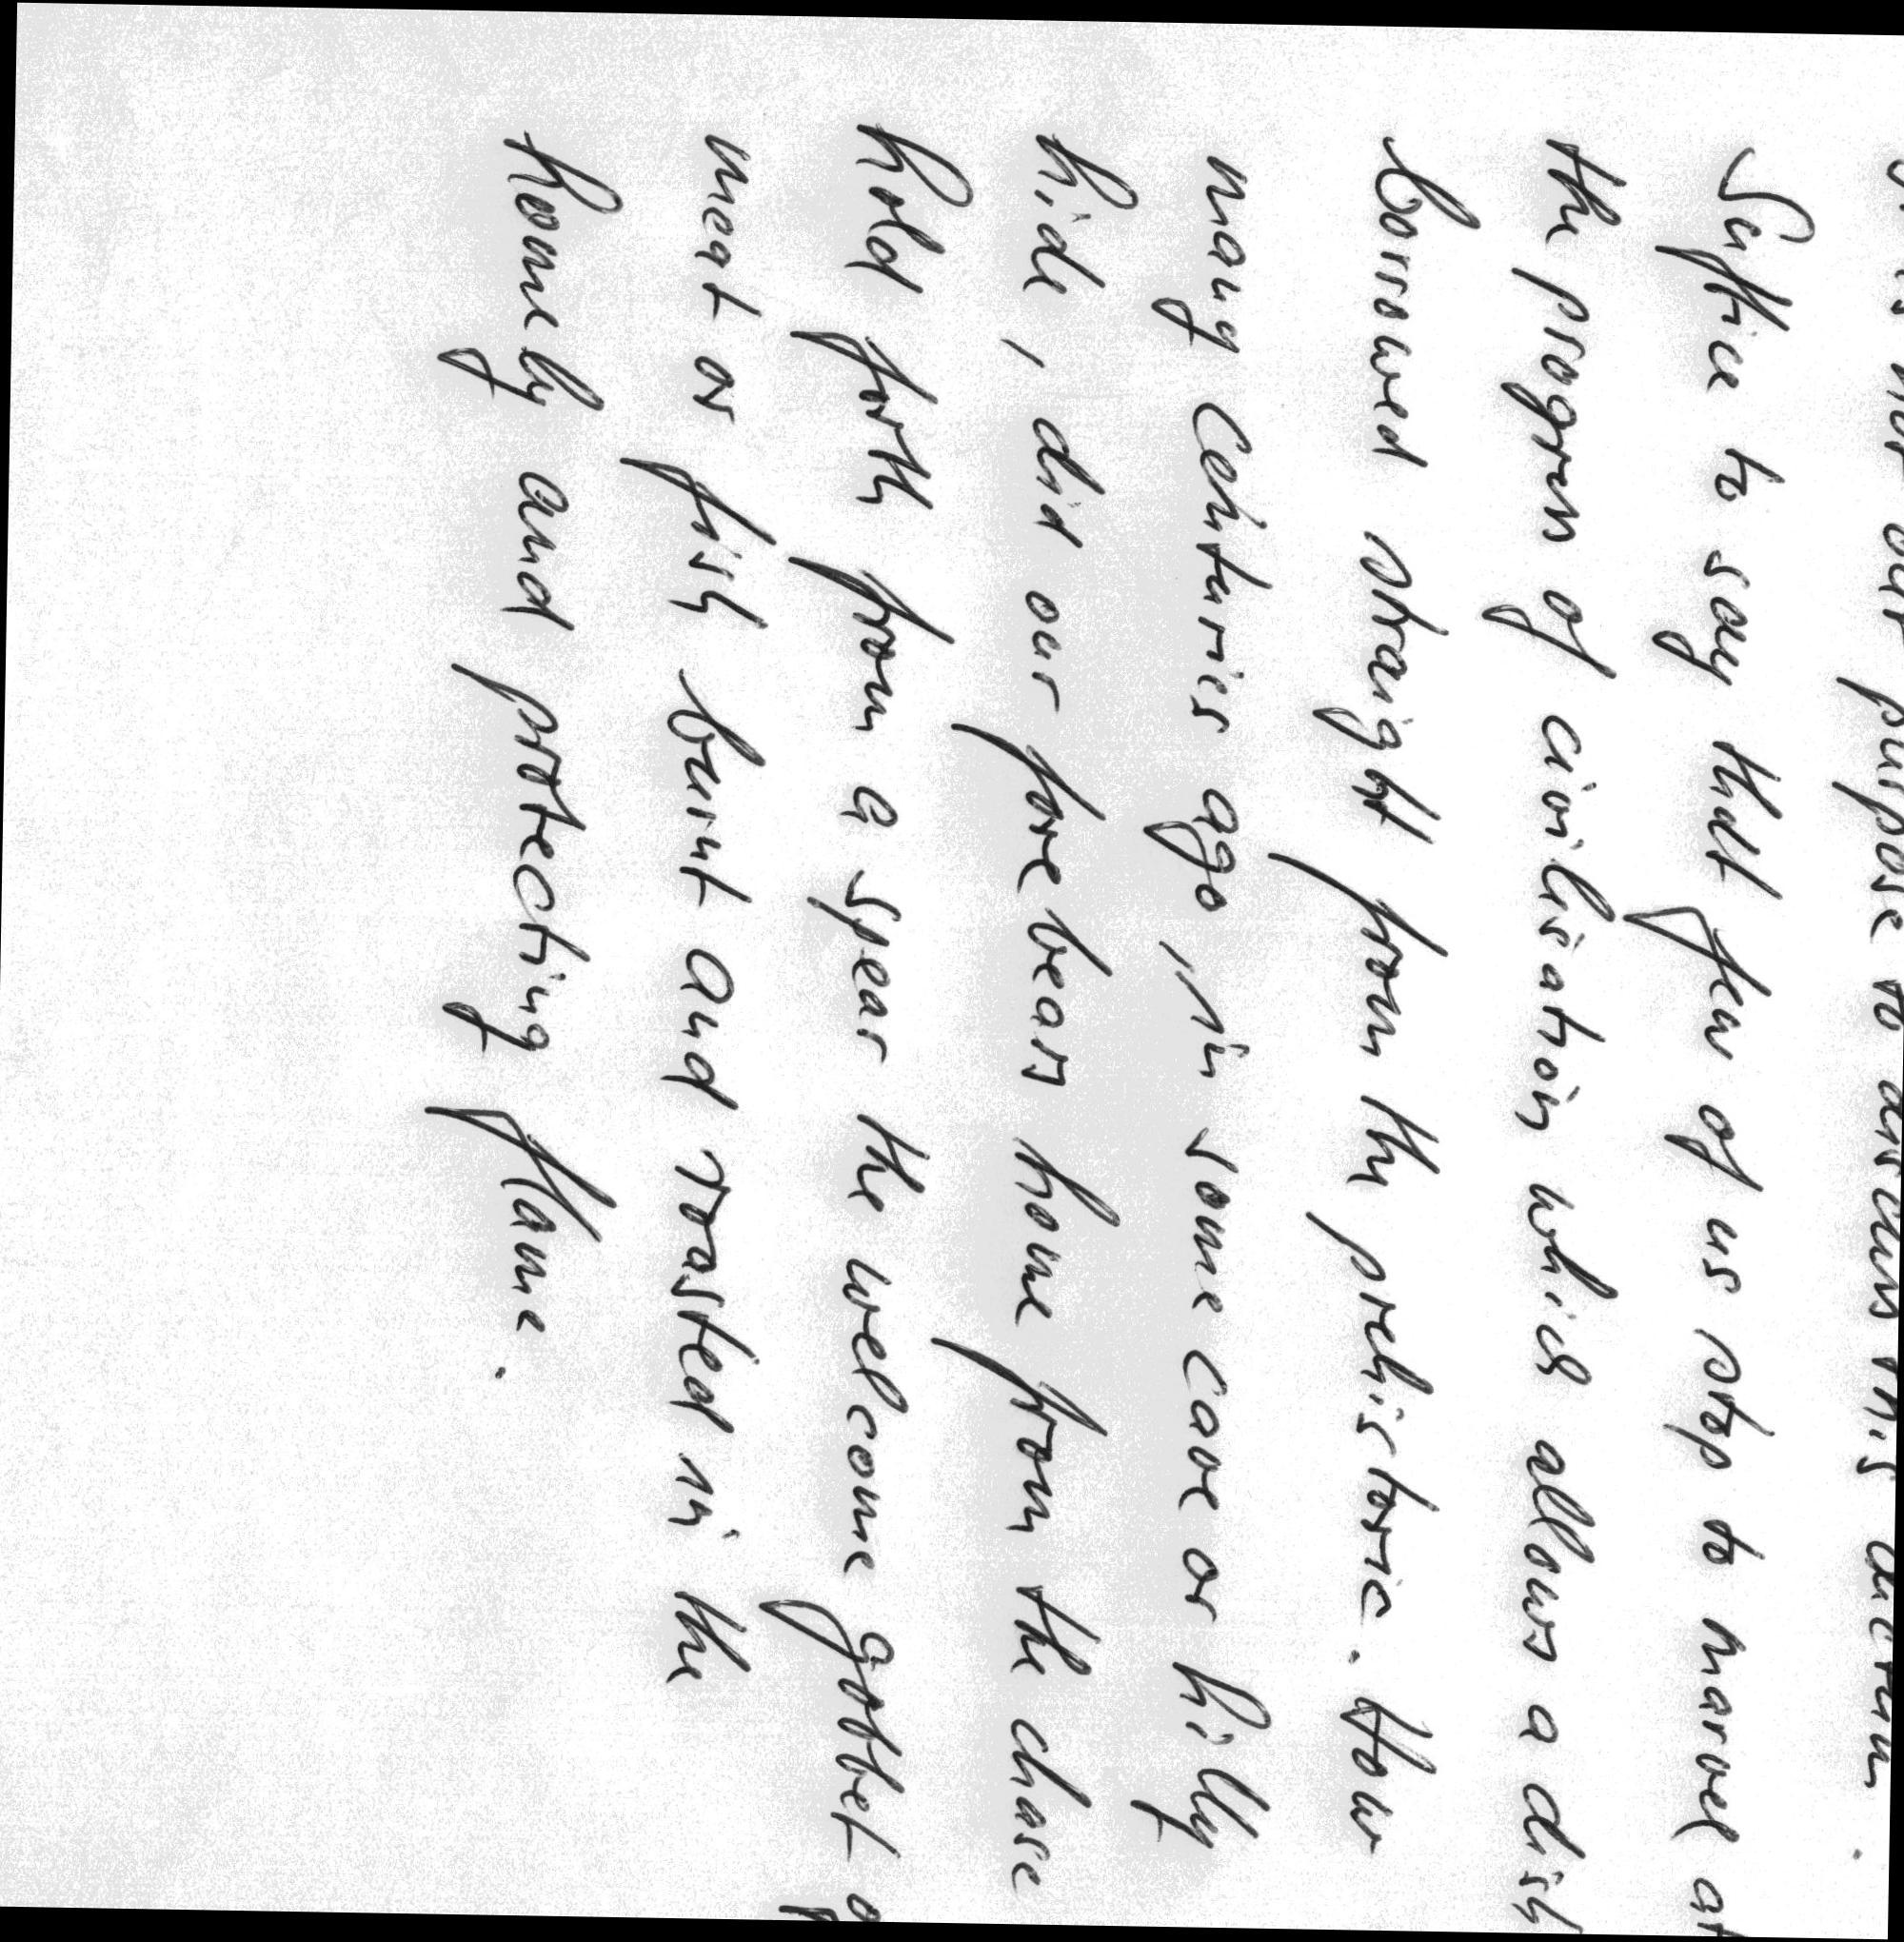 is not our purpose to discuss this dictum.
Suffice to say that few of us stop to marvel at
the progress of civilisation which allows a dish
borrowed straight from the prehistoric. How
many centuries ago, in some cave or hilly
hide, did our forebears home from the chase
hold forth from a spear the welcome gobbet of
meat or fish burnt and roasted in the
homely and protecting flame.